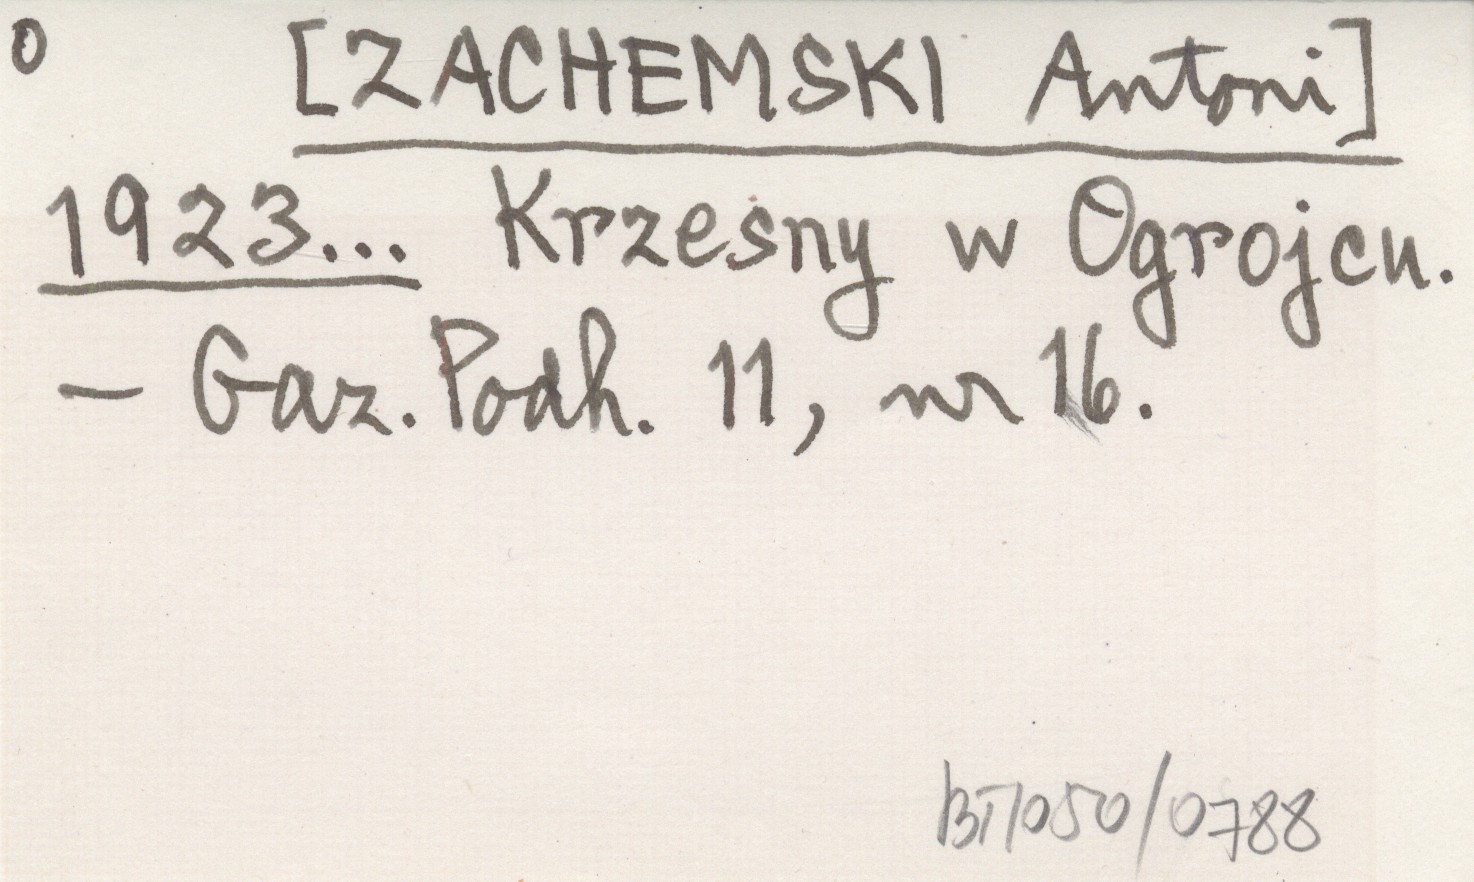 0 [ZACHEMSKI Antoni]
1923... Krzesny w Ogrojcu.
– Gaz. Podh. 11, nr 16.
BT/050/0788